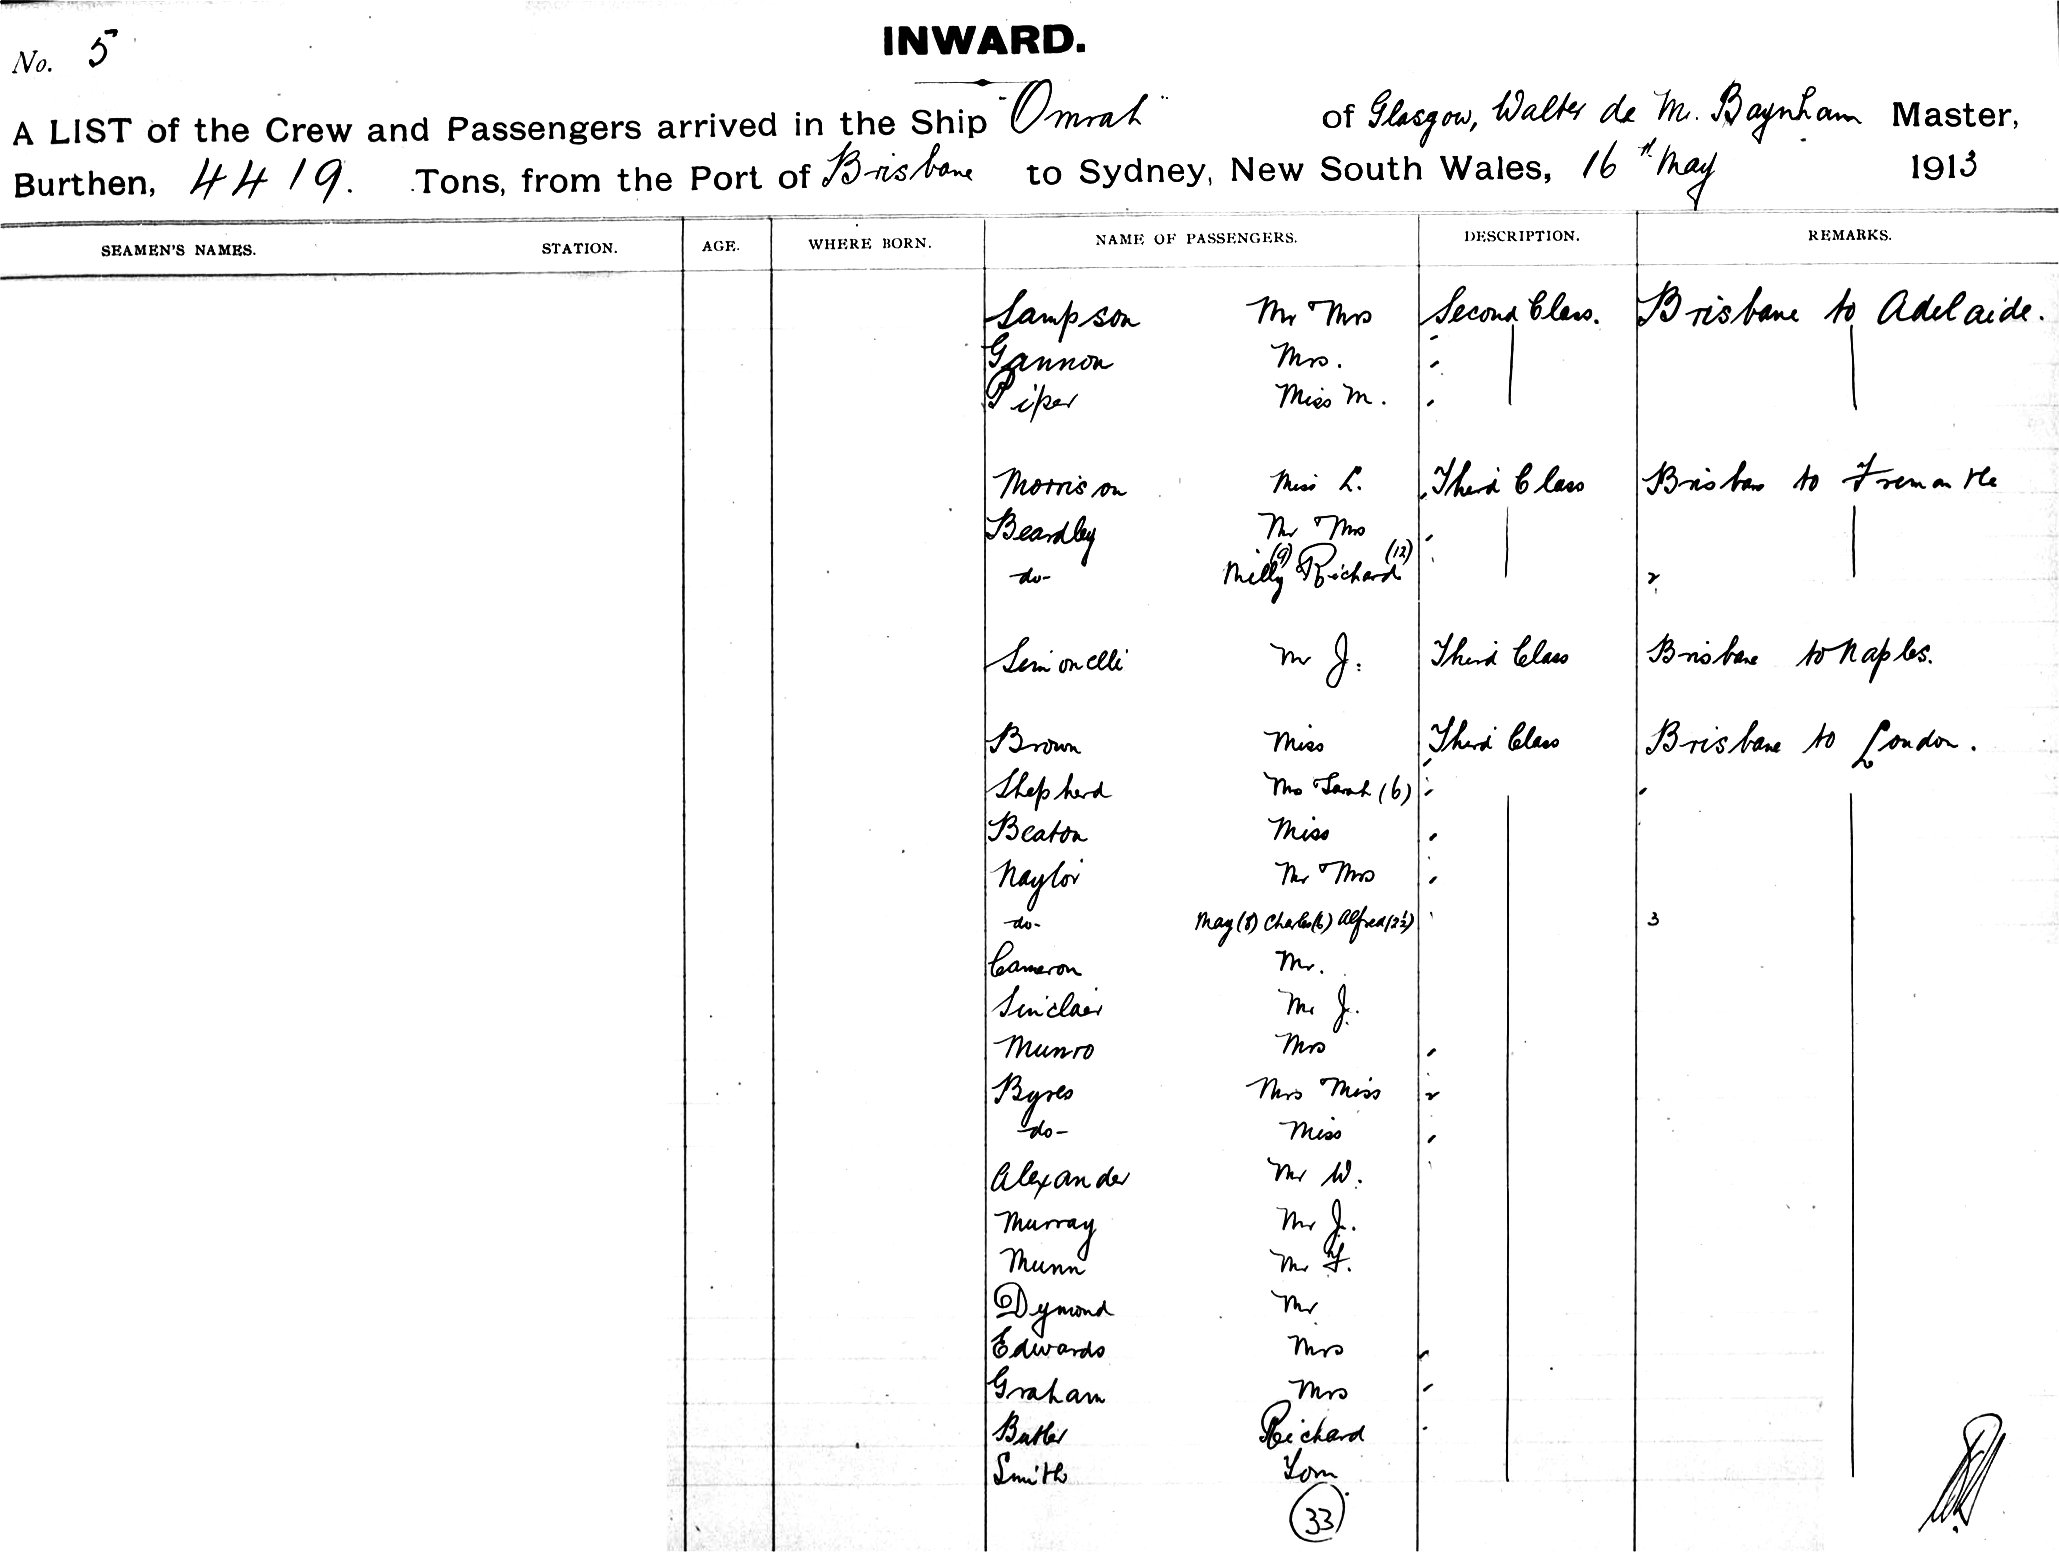 No. 5
INWARD.
A LIST of the Crew and Passengers arrived in the Ship "Omrah" of Glasgow, Walter de M. Baynham Master,
Burthen, 4419. Tons, from the Port of Brisbane to Sydney, New South Wales, 16th May 1913
SEAMEN'S NAMES. STATION. AGE. WHERE BORN. NAME OF PASSENGERS. DESCRIPTION. REMARKS.
Sampson Mr Mrs Second Class. Brisbane to Adelaide.
Gannon Mrs.
Piper Miss M.
Morrison Miss L. Third Class Brisbane to Fremantle
Beardley Mr Mrs
do- Milly (9) Richard (12) 2
Simonelli Mr J. Third Class Brisbane to Naples.
Brown Miss Third Class Brisbane to London.
Shepherd Mrs Sarah (6)
Beaton Miss
Naylor Mr Mrs
do- May (8) Charles (6) Alfred (2½) 3
Cameron Mr.
Sinclair Mr J.
Munro Mrs
Byres Mrs Miss 2
do- Miss
Alexander Mr W.
Murray Mr J.
Munn Mr F.
Dymond Mr
Edwards Mrs
Graham Mrs
Butler Richard
Smith Tom
33